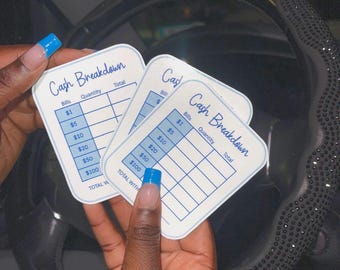 Cash Breakdown
Bills Quantity Total
$1
$5
$10
$20
$50
$100
TOTAL WITH
Cash
Bills
$1
Cash Breakdown
Bills Quantity Total
$1
$5
$10
$20
$50
$100
TOTAL